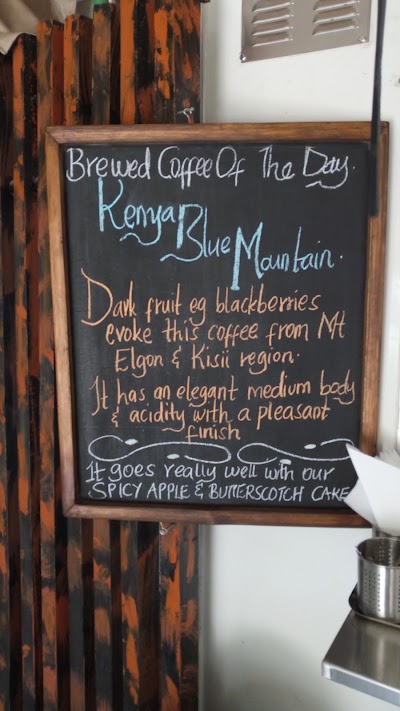 Brewed Coffee Of The Day.
Kenya
Blue Mountain.
Dark fruit eg blackberries
evoke this coffee from Mt
Elgon & Kisii region.
It has an elegant medium body
& acidity with a pleasant
finish
It goes really well with our
SPICY APPLE & BUTTERSCOTCH CAKE